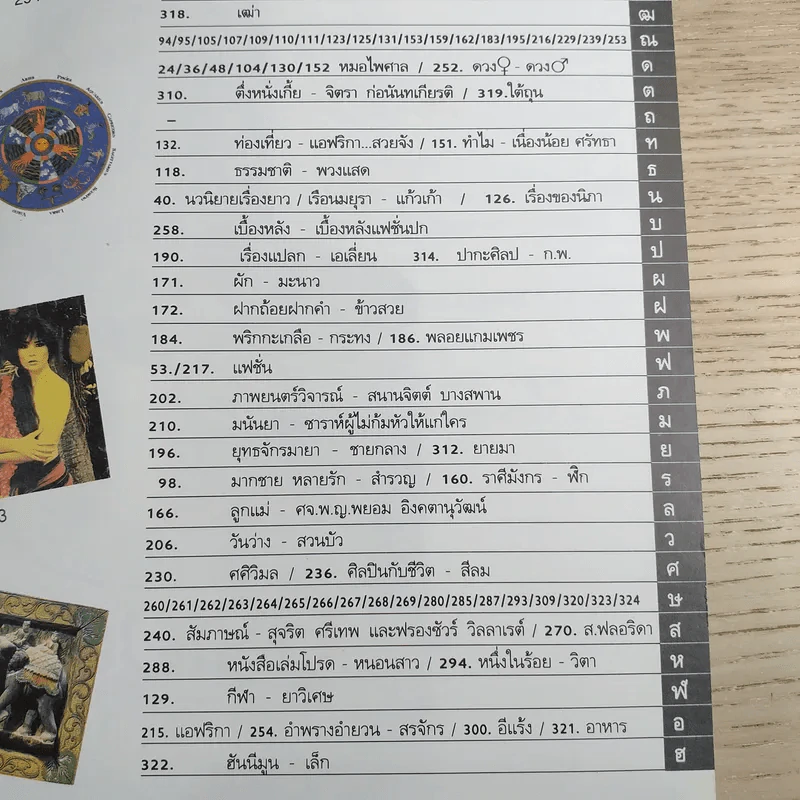 318. เฒ่า ฒ
94/95/105/107/109/110/111/123/125/131/153/159/162/183/195/216/229/239/253 ณ
24/36/48/104/130/152 หมอไพศาล / 252. ดวง♀ - ดวง♂ ด
310. ตึ่งหนั่งเกี้ย - จิตรา ก่อนันทเกียรติ / 319.ใต้ถุน ต
– ถ
132. ท่องเที่ยว - แอฟริกา...สวยจัง / 151. ทำไม - เนื่องน้อย ศรัทธา ท
118. ธรรมชาติ - พวงแสด ธ
40. นวนิยายเรื่องยาว / เรือนมยุรา - แก้วเก้า / 126. เรื่องของนิภา น
258. เบื้องหลัง - เบื้องหลังแฟชั่นปก บ
190. เรื่องแปลก - เอเลี่ยน 314. ปากะศิลป - ก.พ. ป
171. ผัก - มะนาว ผ
172. ฝากถ้อยฝากคำ - ข้าวสวย ฝ
184. พริกกะเกลือ - กระทง / 186. พลอยแกมเพชร พ
53./217. แฟชั่น ฟ
202. ภาพยนตร์วิจารณ์ - สนานจิตต์ บางสพาน ภ
210. มนันยา - ซาราห์ผู้ไม่ก้มหัวให้แก่ใคร ม
196. ยุทธจักรมายา - ชายกลาง / 312. ยายมา ย
98. มากชาย หลายรัก - สำรวญ / 160. ราศีมังกร - ฟิก ร
166. ลูกแม่ - ศจ.พ.ญ.พยอม อิงคตานุวัฒน์ ล
206. วันว่าง - สวนบัว ว
230. ศศิวิมล / 236. ศิลปินกับชีวิต - สีลม ศ
260/261/262/263/264/265/266/267/268/269/280/285/287/293/309/320/323/324 ษ
240. สัมภาษณ์ - สุจริต ศรีเทพ และฟรองซัวร์ วิลลาเรต์ / 270. ส.ฟลอริดา ส
288. หนังสือเล่มโปรด - หนอนสาว / 294. หนึ่งในร้อย - วิตา ห
129. กีฬา - ยาวิเศษ ฬ
215. แอฟริกา / 254. อำพรางอำยวน - สรจักร / 300. อีแร้ง / 321. อาหาร อ
322. ฮันนีมูน - เล็ก ฮ